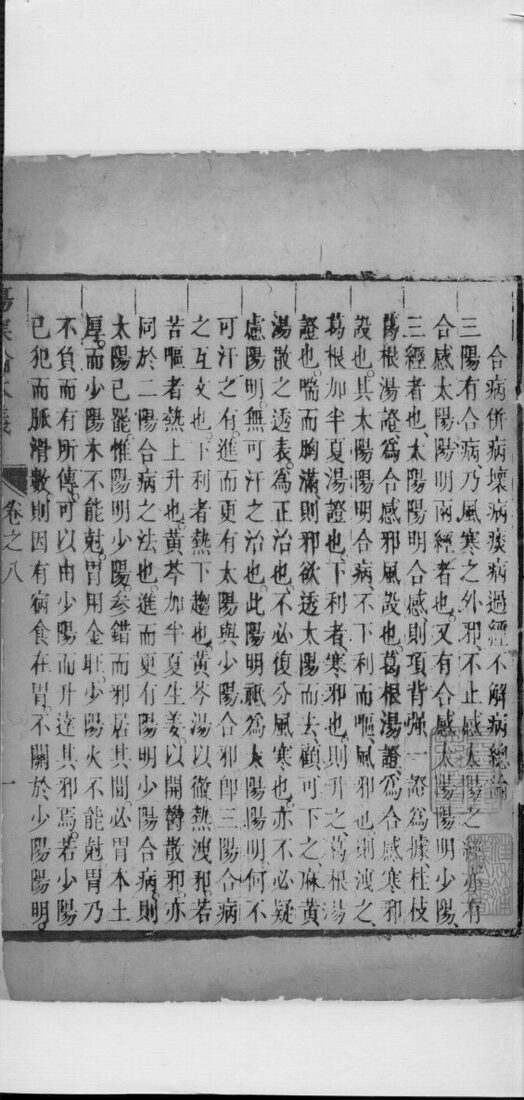 合病併病壞病痰病過經不解病總論
三陽有合病乃風寒之外邪不止感太陽之經亦有
合感太陽陽明兩經者也又有合感太陽陽明少陽
三經者也太陽陽明合感則項背强一證爲據桂枝
葛根湯證爲合感邪風設也葛根湯證爲合感寒邪
設也其太陽陽明合病不下利而嘔風邪也則洩之
葛根加半夏湯證也下利者寒邪也則升之葛根湯
證也喘而胸滿則邪欲透太陽而去顧可下之麻黃
湯散之透表爲正治也不必復分風寒也亦不必疑
慮陽明無可汗之治也此陽明祇爲太陽陽明何不
可汗之有進而更有太陽與少陽合邪卽三陽合病
之互文也下利者熱下趨也黃芩湯以徹熱洩邪若
苦嘔者熱上升也黃芩加半夏生姜以開鬱散邪亦
同於二陽合病之法也進而更有陽明少陽合病則
太陽已罷惟陽明少陽參錯而邪居其間必胃本土
厚而少陽木不能尅胃用金旺少陽火不能尅胃乃
不負而有所傳可以由少陽而升達其邪焉若少陽
已犯而脈滑數則因有病食在胃不關於少陽陽明
卷之八
一